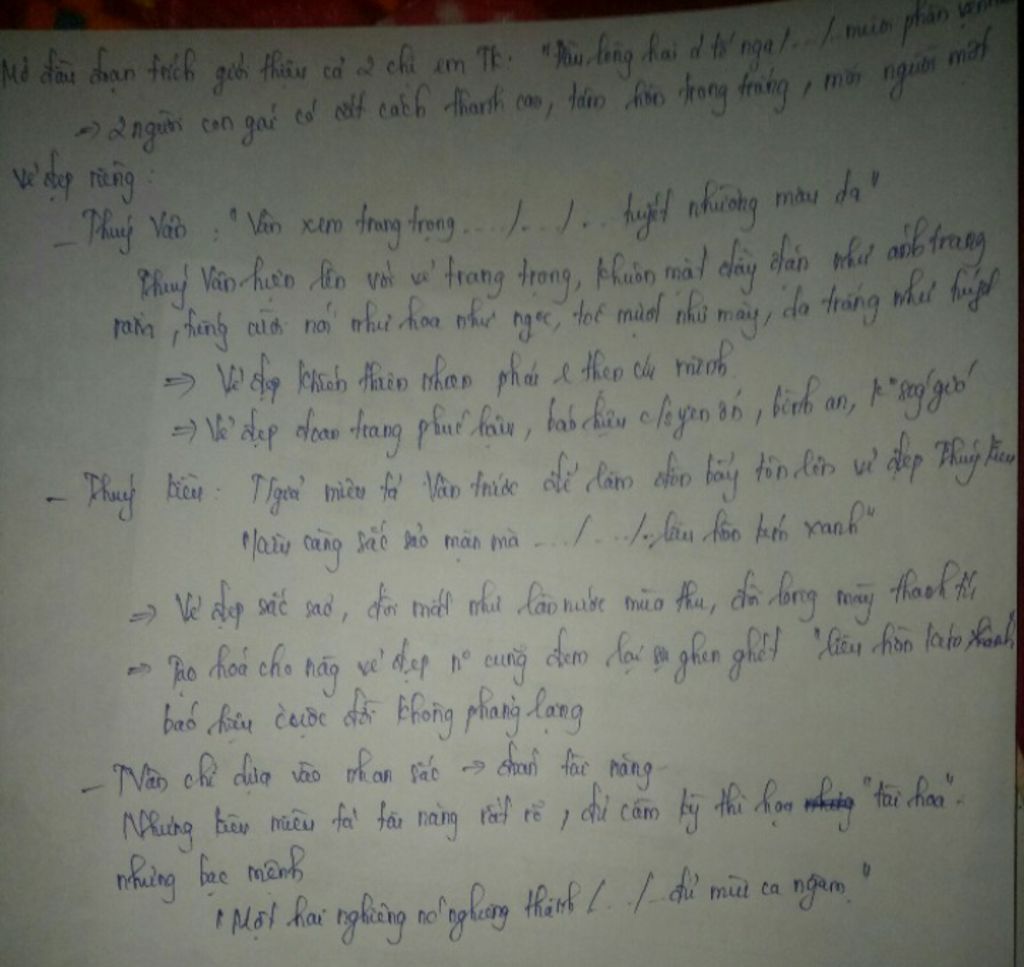 Mở đầu đoạn trích giới thiệu cả 2 chị em TK: "Đầu lòng hai ả tố nga /.../..mười phân vẹn
=> 2 người con gái có cốt cách thanh cao, tâm hồn trong trắng, mỗi người một
vẻ đẹp riêng:
- Thuý Vân : "Vân xem trang trọng..../.../... tuyết nhường màu da"
Thuý Vân hiện lên với vẻ trang trọng, khuôn mặt đầy đặn như ánh trăng
rằm, tiếng cười nói như hoa như ngọc, tóc mượt như mây, da trắng như tuyết
=> Vẻ đẹp khiến thiên nhiên phải
=> Vẻ đẹp đoan trang phúc hậu, báo hiệu c/s yên ổn, bình an, k° sóg gió
- Thuý Kiều : Tgiả miêu tả Vân trước để làm đòn bẩy tôn lên vẻ đẹp Thuý Kiều
"Kiều càng sắc sảo mặn mà .../.../..liễu hờn kém xanh"
=> Vẻ đẹp sắc sảo, đôi mắt như làn nước mùa thu, đôi lông mày thanh tú
=> Tạo hoá cho nàg vẻ đẹp nó cũng đem lại sự ghen ghét "liễu hờn kém xanh"
báo hiệu cuộc đời không phẳng lặng
- TVân chỉ dựa vào nhan sắc -> tài năng
Nhưng Kiều miêu tả tài năng rất rõ, đủ cầm kỳ thi hoạ "tài hoa"-
nhưng bạc mệnh
"Một hai nghiêng nước nghiêng thành /.../..đủ mùi ca ngâm"